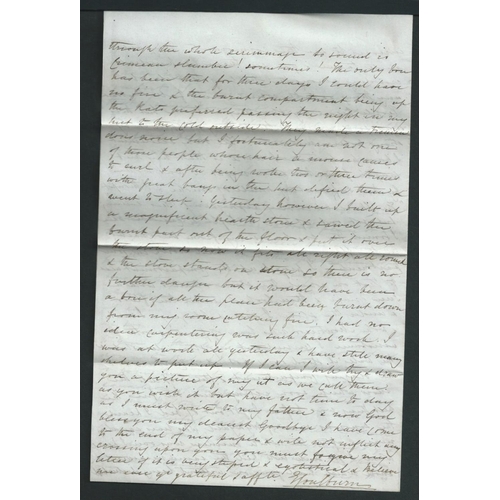 through the whole scrimmage so sound is
Crimean slumber sometimes! The only bore
has been that for three days I could have
no fire & the burnt compartment being up
the Rats preferred passing the night in my
hut to the cold outside. They made a
noise but I fortunately am not one
of those people whose hair a mouse causes
to curl & after being woke two or three times
with great bangs in the hut defied them &
went to sleep. Yesterday however I built up
a magnificent hearth stone & sawed the
burnt part out of the floor & put it over
the stone so now it is all right all round
& the stove stands on stone so there is no
further danger but it would have been
a bore if all the place had been burnt down
from my room catching fire. I had no
idea carpentering was such hard work. I
was at work all yesterday & have still many
shelves to put up. If I can I will try & draw
you a picture of my hut as we call them
as you wish it but have not time to day
as I must write to my father & now God
bless you my dearest Goodbye I have come
to the end of my paper & will not inflict any
crossing upon you you must forgive my
letter if it is very stupid & egotistical &
me ever yr grateful & affte